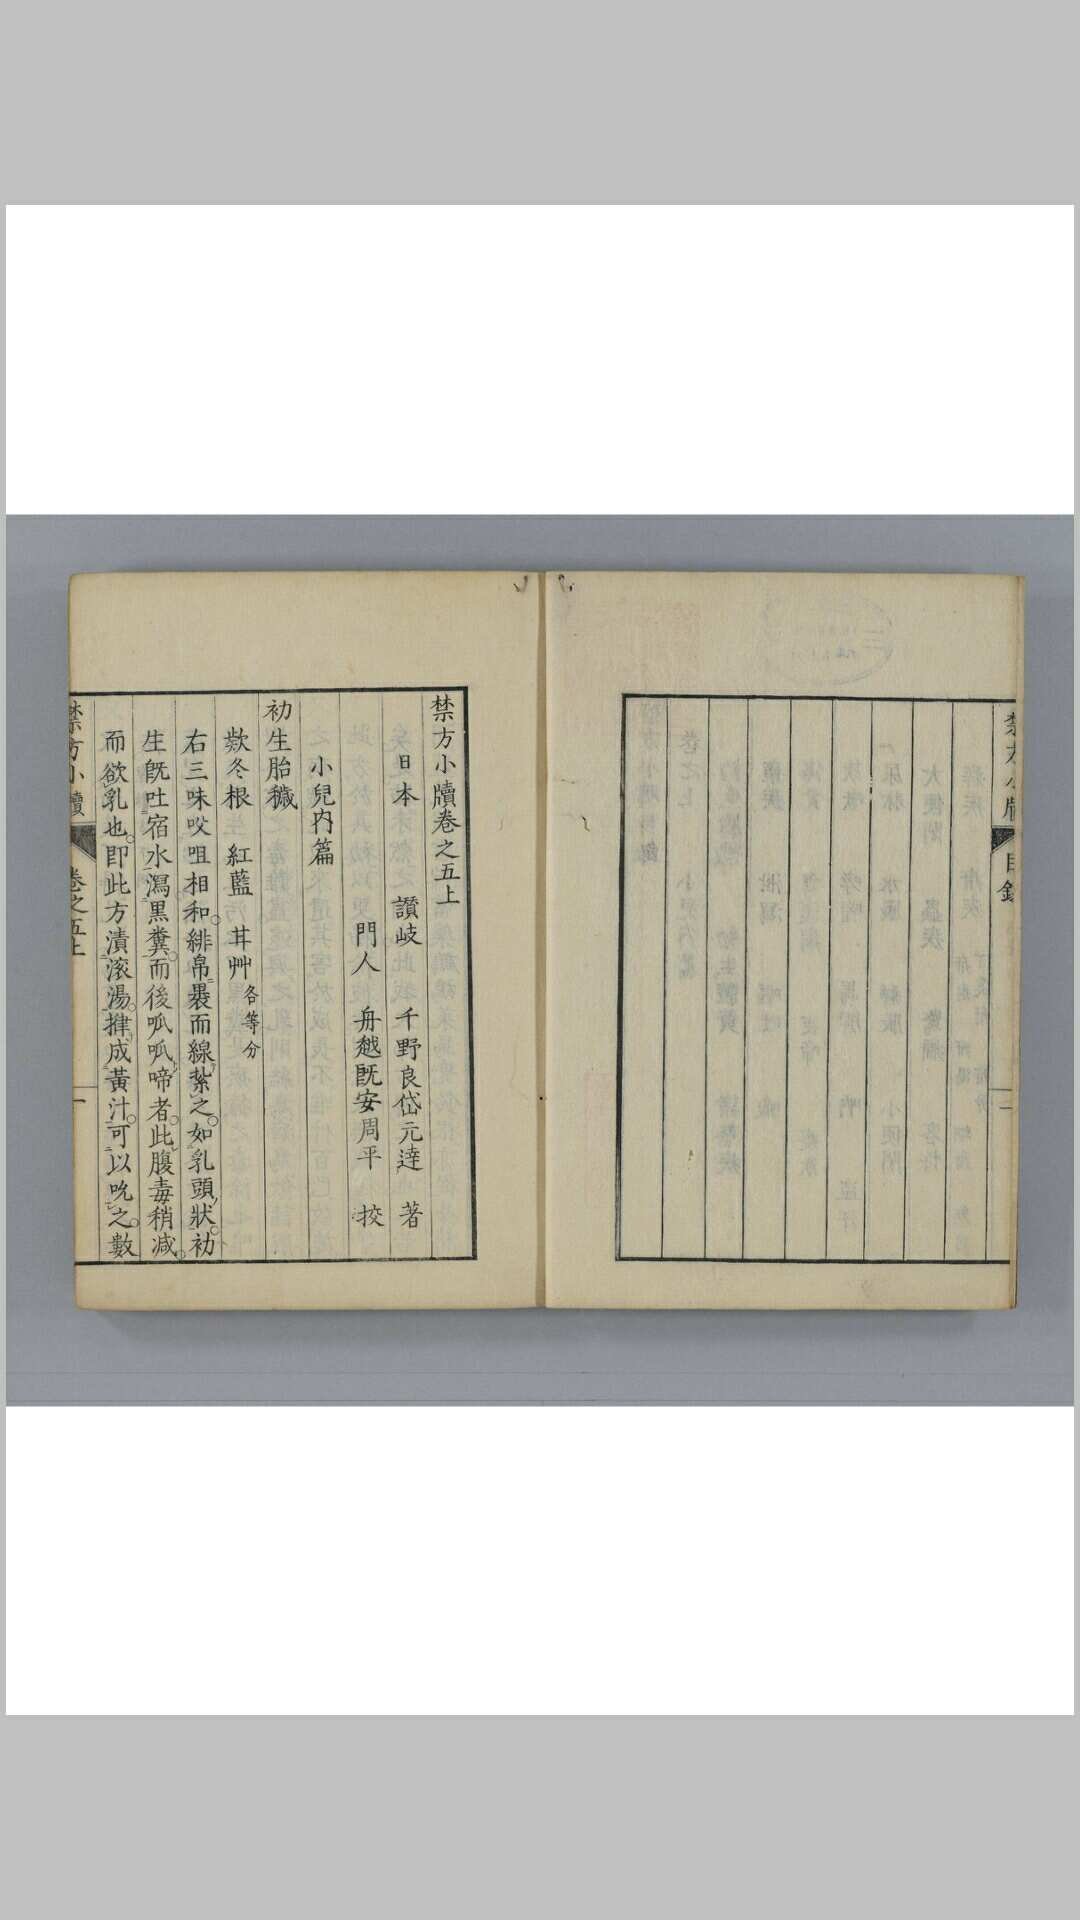 禁方小牘
目錄
二
禁方小牘卷之五上
日本 讚岐 千野良岱元達 著
門人 舟越既安周平 挍
小兒内篇
初生胎穢
欵冬根 紅藍 苷艸各等分
右三味㕮咀相和緋帛裹而線紮之如乳頭狀初
生既吐宿水瀉黒糞而後呱呱啼者此腹毒稍減
而欲乳也即此方漬滚湯揵成黃汁可以吮之數
禁方小牘
卷之五上
一